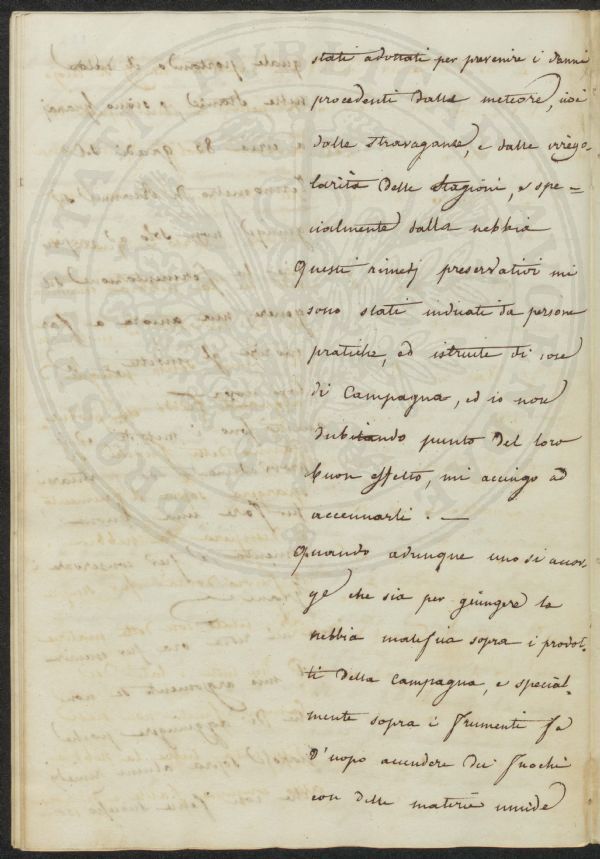 stati adottati per prevenire i danni
procedenti dalle meteore, cioè
dalle stravaganze, e dalle irrego-
larità delle stagioni, e spe-
cialmente dalla nebbia
Questi rimedj preservativi mi
sono stati indicati da persone
pratiche, ed istruite di cose
di Campagna, ed io non
dubitando punto del loro
buon effetto, mi accingo ad
accennarli. —
Quando adunque uno si accor-
ge che sia per giungere la
nebbia malefica sopra i prodot-
ti della Campagna, e special-
mente sopra i frumenti fa
d'uopo accendere dei fuochi
con delle materie umide